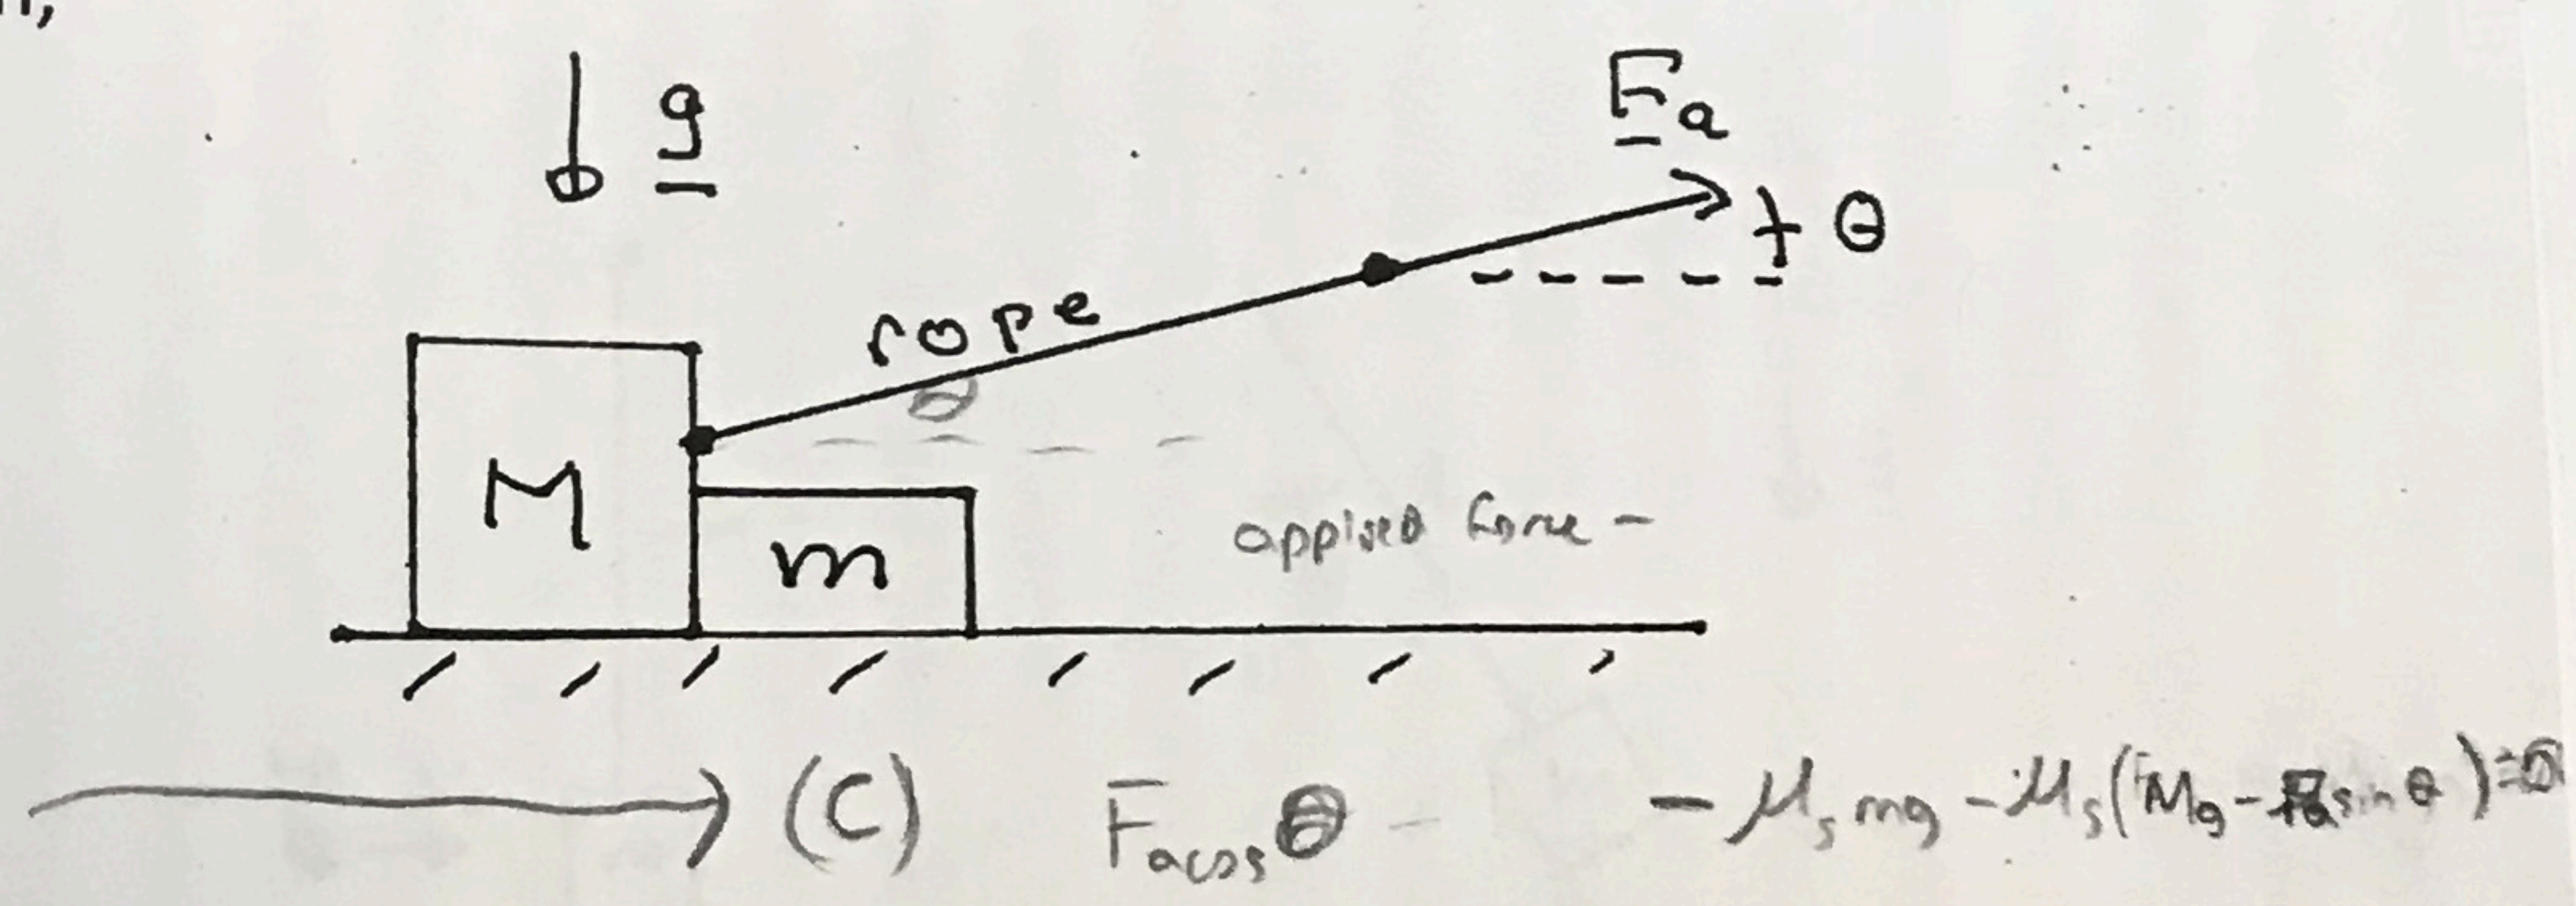 g
F a
θ
rope
θ
M
m
applied force -
(C) F a cos θ - μs mg - μs (Mg - Fa sin θ) = 0